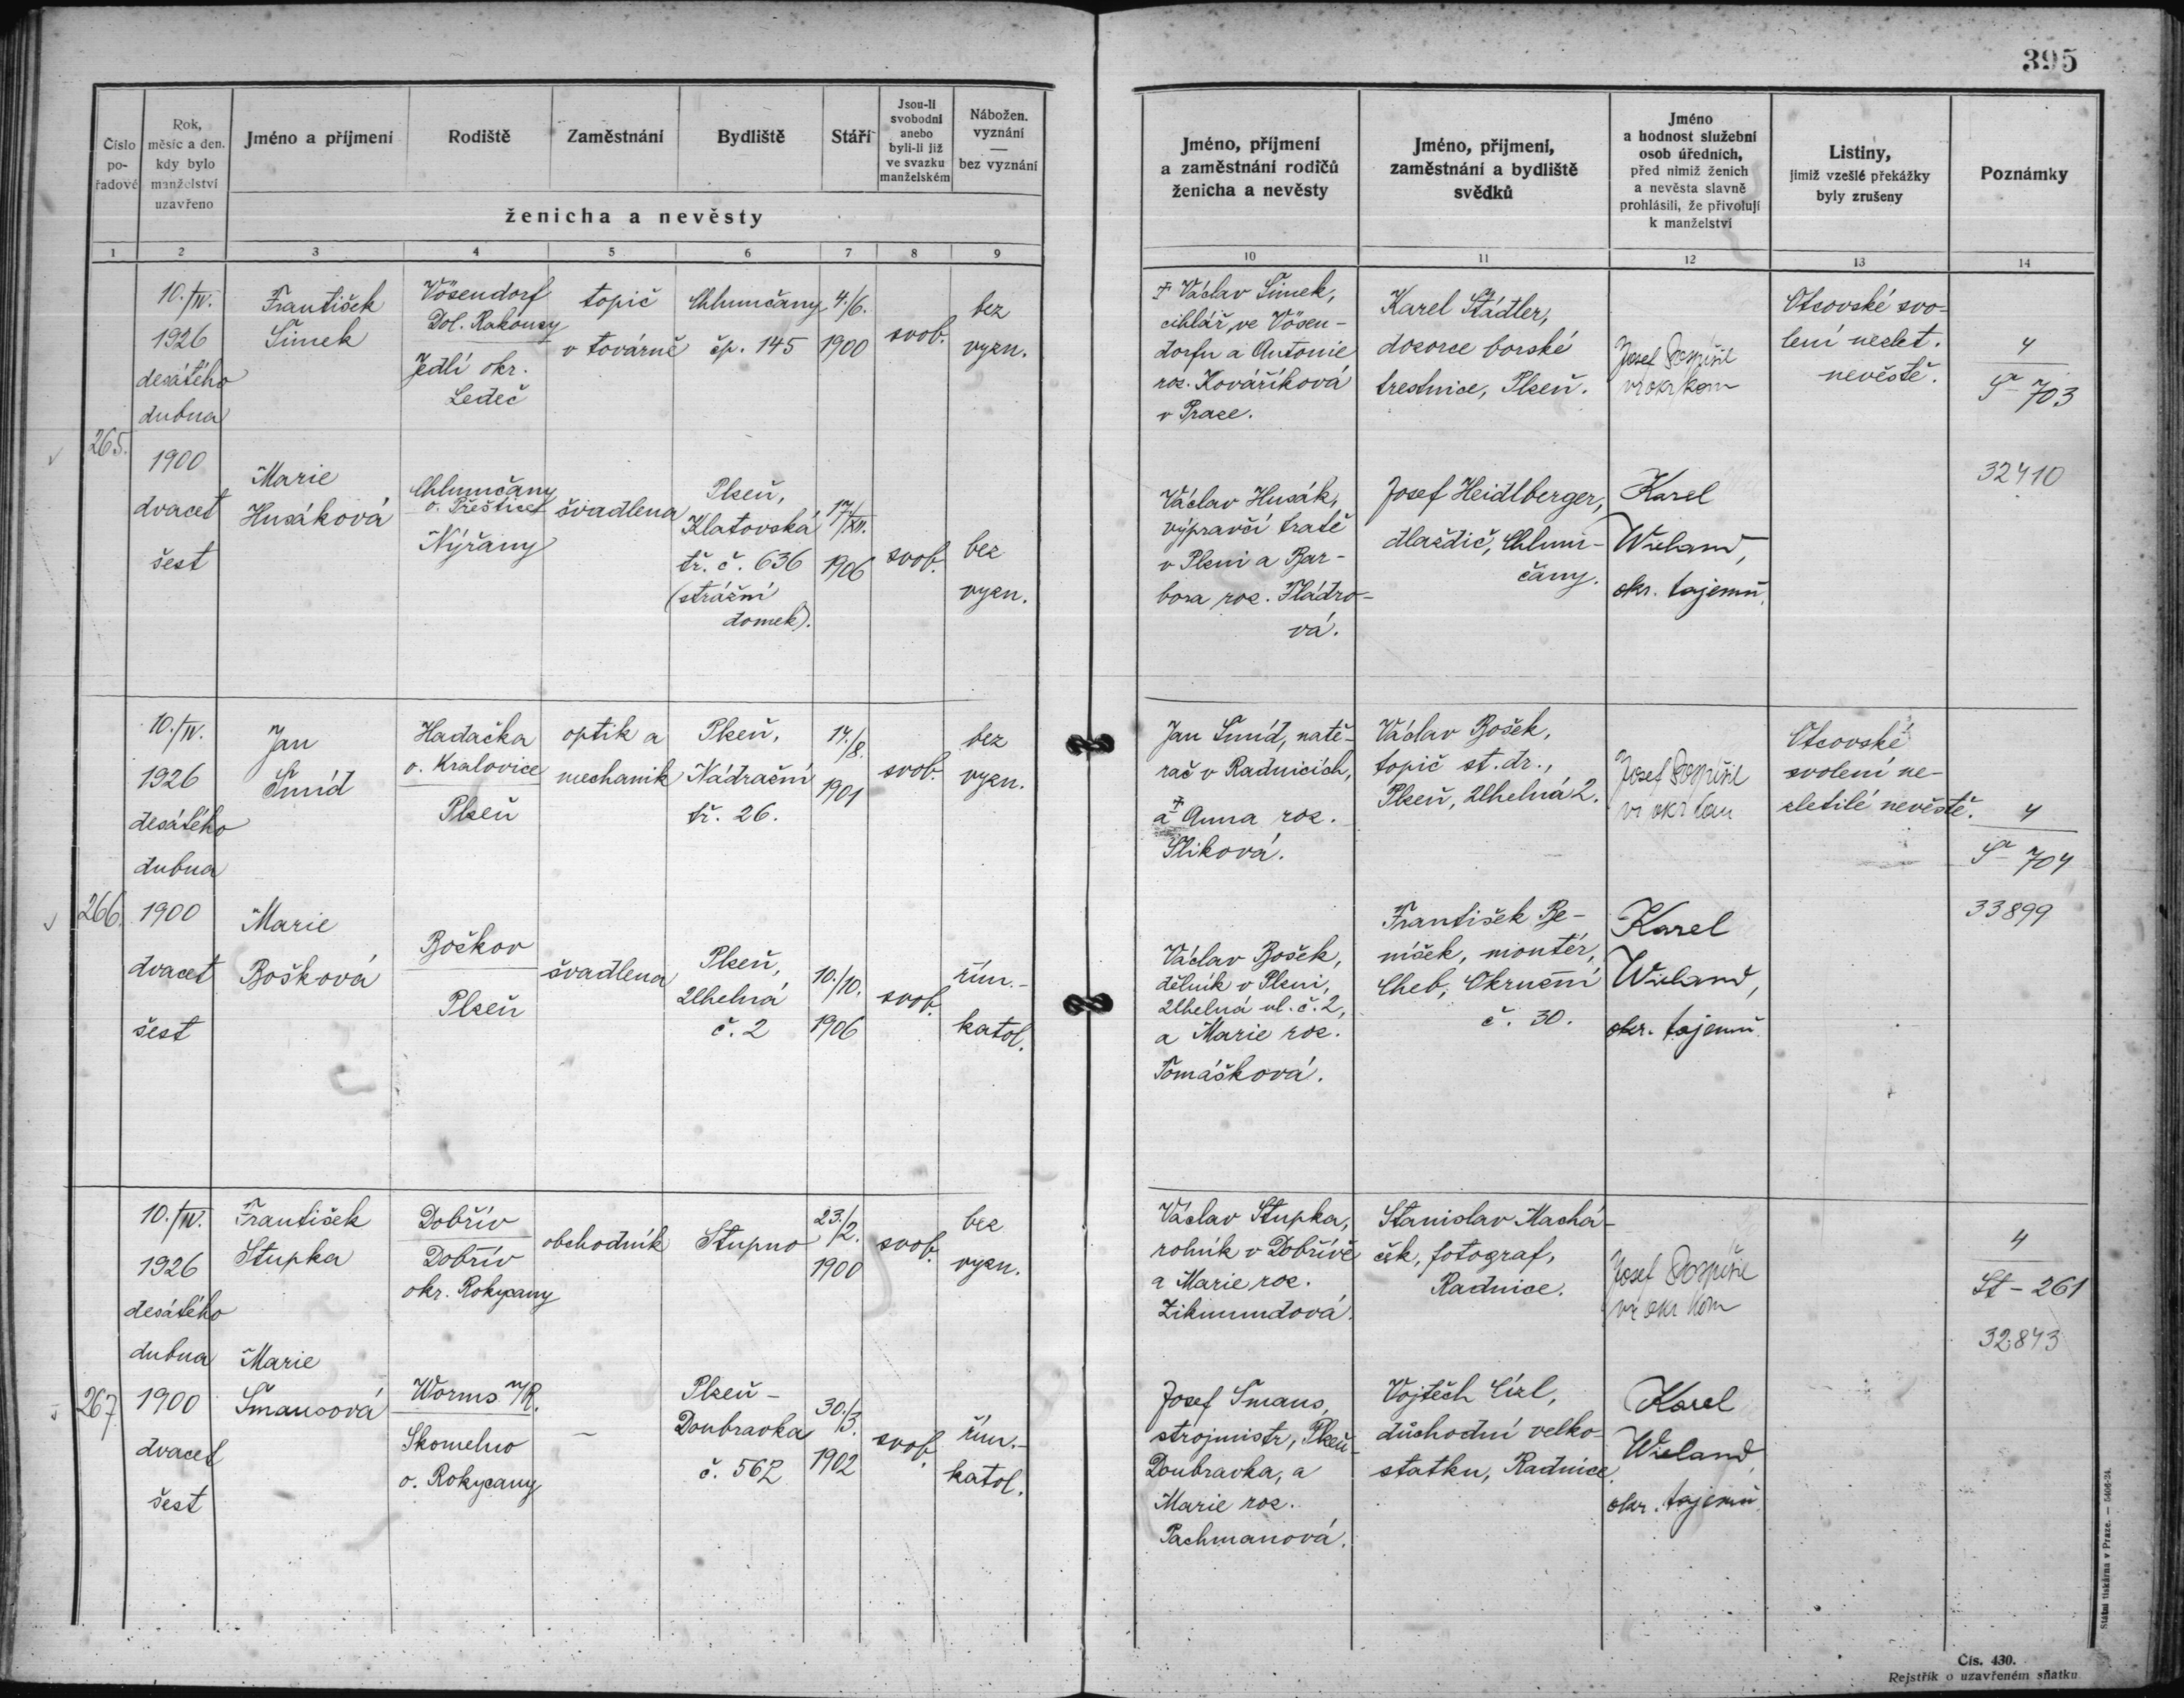 395
Číslo
po-
řadové
Rok,
měsíc a den,
kdy bylo
manželství
uzavřeno
Jméno a příjmení
Rodiště
Zaměstnání
Bydliště
Stáří
Jsou-li
svobodni
anebo
byli-li již
ve svazku
manželském
Nábožen.
vyznání
—
bez vyznání
ženicha a nevěsty
1
2
3
4
5
6
7
8
9
Jméno, příjmení
a zaměstnání rodičů
ženicha a nevěsty
Jméno, příjmení,
zaměstnání a bydliště
svědků
Jméno
a hodnost služební
osob úředních,
před nimiž ženich
a nevěsta slavně
prohlásili, že přivolují
k manželství
Listiny,
jimiž vzešlé překážky
byly zrušeny
Poznámky
10
11
12
13
14
265.
10./IV.
1926
desátého
dubna
1900
dvacet
šest
František
Šimek
Vösendorf
Dol. Rakousy
Jedlí okr.
Ledeč
topič
v továrně
Chlumčany
čp. 145
4./6.
1900
svob.
bez
vyzn.
Marie
Husáková
Chlumčany
o. Přeštice
Nýřany
švadlena
Plzeň,
Klatovská
tř. č. 636
(strážní
domek).
17./XII.
1906
svob.
bez
vyzn.
† Václav Šimek,
cihlář ve Vösen-
dorfu a Antonie
roz. Kováříková
v Praze.
Karel Städler,
dozorce borské
trestnice, Plzeň.
Josef Pospíšil
vr okr kom
Otcovské svo-
lení nezlet.
nevěstě.
4
Sa 703
32410
Václav Husák,
výpravčí tratě
v Plzni a Bar-
bora roz. Fládro-
vá.
Josef Heidlberger,
dlaždič, Chlum-
čany.
Karel
Wieland,
okr. tajemn.
266.
10./IV.
1926
desátého
dubna
1900
dvacet
šest
Jan
Šmíd
Hadačka
o. Kralovice
Plzeň
optik a
mechanik
Plzeň,
Nádražní
tř. 26.
14./8.
1901
svob.
bez
vyzn.
Marie
Bošková
Boškov
Plzeň
švadlena
Plzeň,
Uhelná
č. 2
10./10.
1906
svob.
řím.-
katol.
Jan Šmíd, natě-
rač v Radnicích,
a † Anna roz.
Slíková.
Václav Bošek,
topič st. dr.,
Plzeň, Uhelná 2.
Josef Pospíšil
vr okr kom
Otcovské
svolení ne-
zletilé nevěstě.
4
Sa 704
33899
Václav Bošek,
dělník v Plzni,
Uhelná ul. č. 2,
a Marie roz.
Tomášková.
František Be-
níšek, montér,
Cheb, Okružní
č. 30.
Karel
Wieland,
okr. tajemn.
267
10./IV.
1926
desátého
dubna
1900
dvacet
šest
František
Stupka
Dobřív
Dobřív
okr. Rokycany
obchodník
Stupno
23./2.
1900
svob.
bez
vyzn.
Marie
Šmausová
Worms n/R.
Skomelno
o. Rokycany
–
Plzeň-
Doubravka
č. 562
30./3.
1902
svob.
řím.-
katol.
Václav Stupka,
rolník v Dobřívě
a Marie roz.
Zikmundová.
Stanislav Machá-
ček, fotograf,
Radnice.
Josef Pospíšil
vr okr kom
4
St - 261
32.843
Josef Šmaus,
strojmistr, Plzeň-
Doubravka, a
Marie roz.
Pachmanová.
Vojtěch Cízl,
důchodní velko-
statku, Radnice.
Karel
Wieland,
okr. tajemn.
Státní tiskárna v Praze. — 5406-24.
Čís. 430.
Rejstřík o uzavřeném sňatku